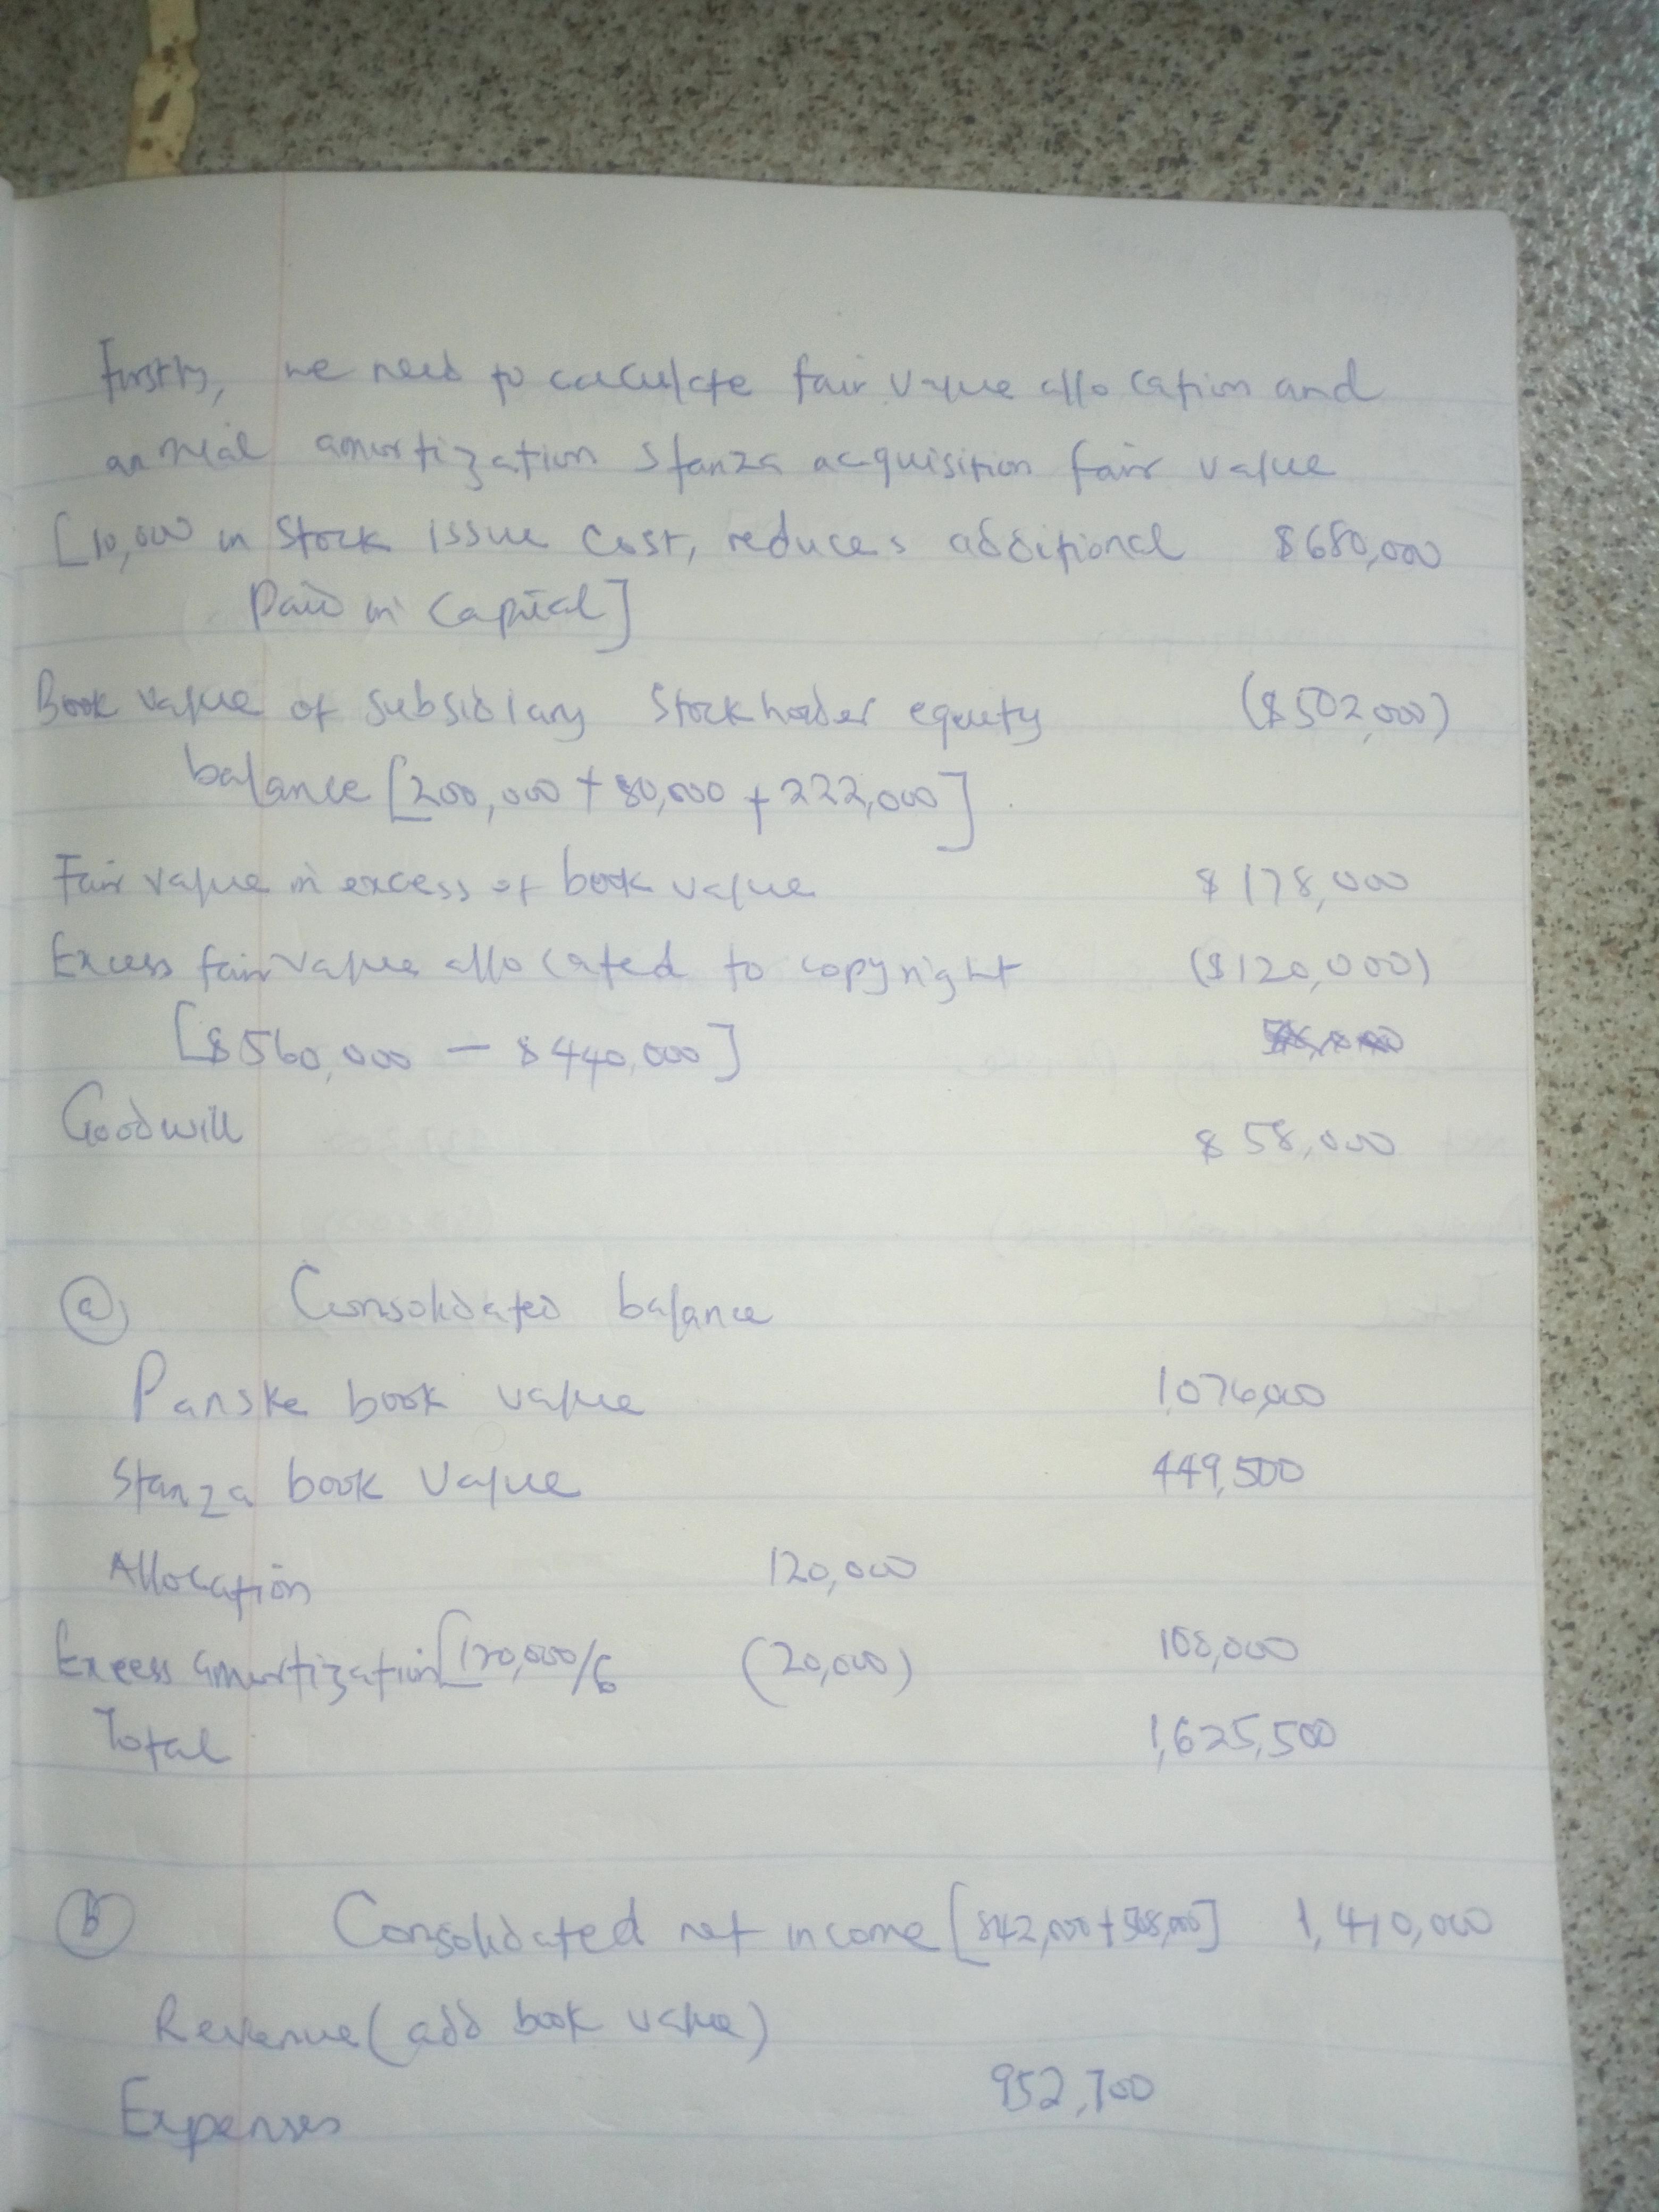 Firstly, we need to calculate fair value allocation and
annual amortization Stanza acquisition fair value
[10,000 in stock issue cost, reduces additional $680,000
Paid in Capital]
Book value of subsidiary Stockholder equity ($502,000)
balance [200,000 + 80,000 + 222,000]
Fair value in excess of book value $178,000
Excess fair value allocated to copyright ($120,000)
[$560,000 - $440,000]
Goodwill $58,000
(a) Consolidated balance
Panske book value 1,076,000
Stanza book value 449,500
Allocation 120,000
Excess amortization [120,000/6 (20,000) 100,000
Total 1,625,500
(b) Consolidated net income [842,000+568,000] 1,410,000
Revenue (add book value)
952,700
Expenses